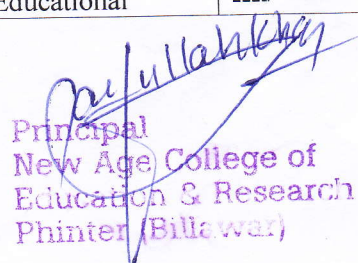 Educational
Principal
New Age College of
Education & Research
Phinter (Billawar)